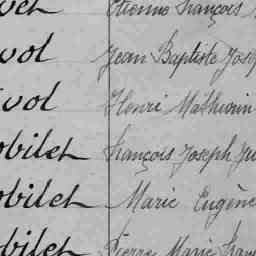 Etienne François
vol Jean Baptiste Jose
vol Henri Mathurin
obilet François Joseph Ju
obilet Marie Eugène
obilet Pierre Marie Fran